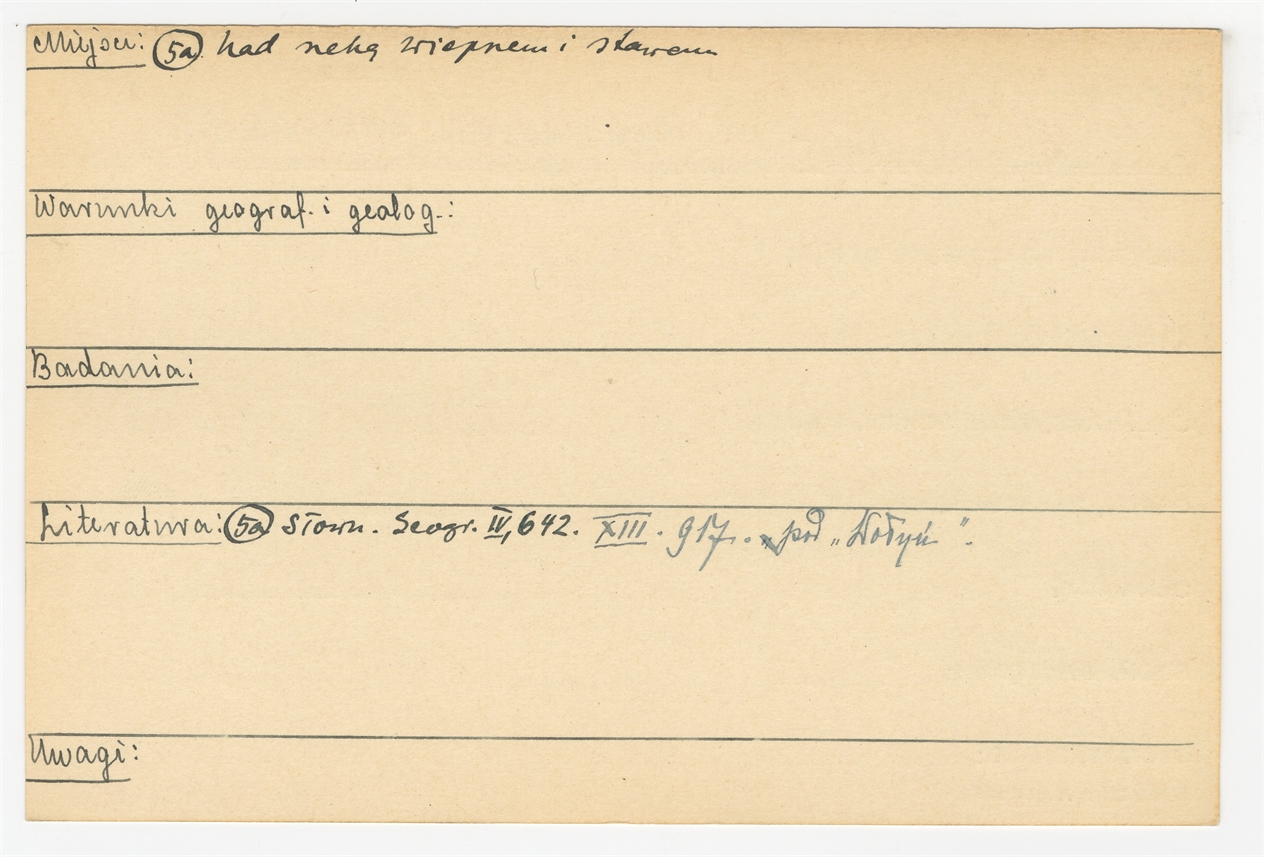 Miejsce: 5a nad rzeką Wieprzem i stawem
Warunki geograf. i geolog.:
Badania:
Literatura: 5a Słown. Geogr. IV, 642. XIII. 917. pod „Wołyń”.
Uwagi: